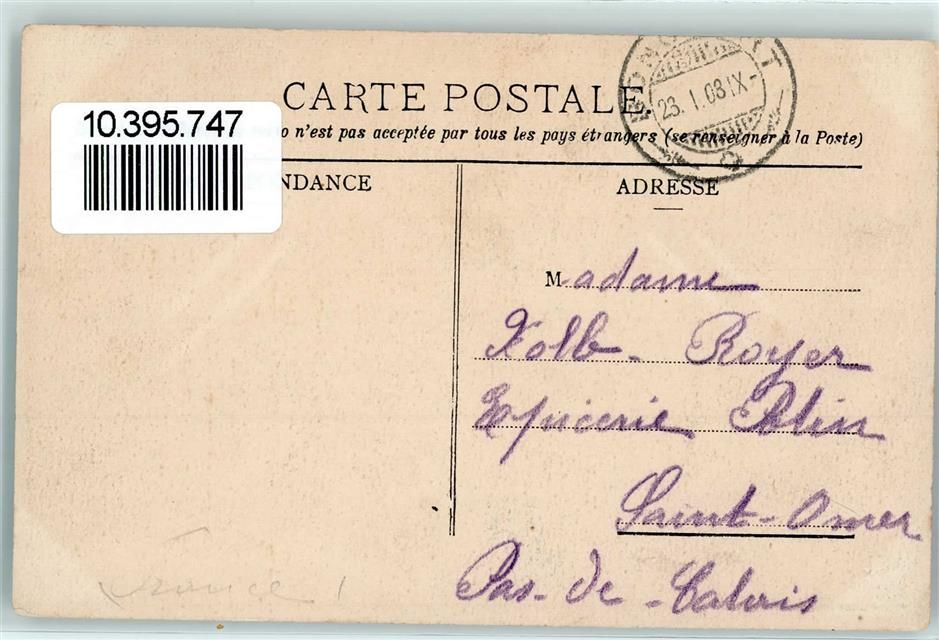 CARTE POSTALE
10.395.747
o n'est pas acceptée par tous les pays étrangers (se renseigner à la Poste)
NDANCE
ADRESSE
23.1.08.IX-
Madame
Kolb-Royer
Epicerie Potin
Saint-Omer
Pas-de-Calais
France